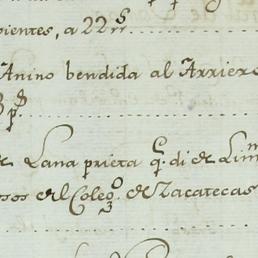 pientes, a 22 rs
Anino bendida al Arriero
3 ps
de Lana prieta q.e di de Lim
sos del Coleg.o de Zacatecas